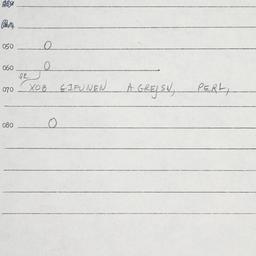 050 0
060 0
070 XOB GIFUNEN AGREJSV, PERL,
080 0